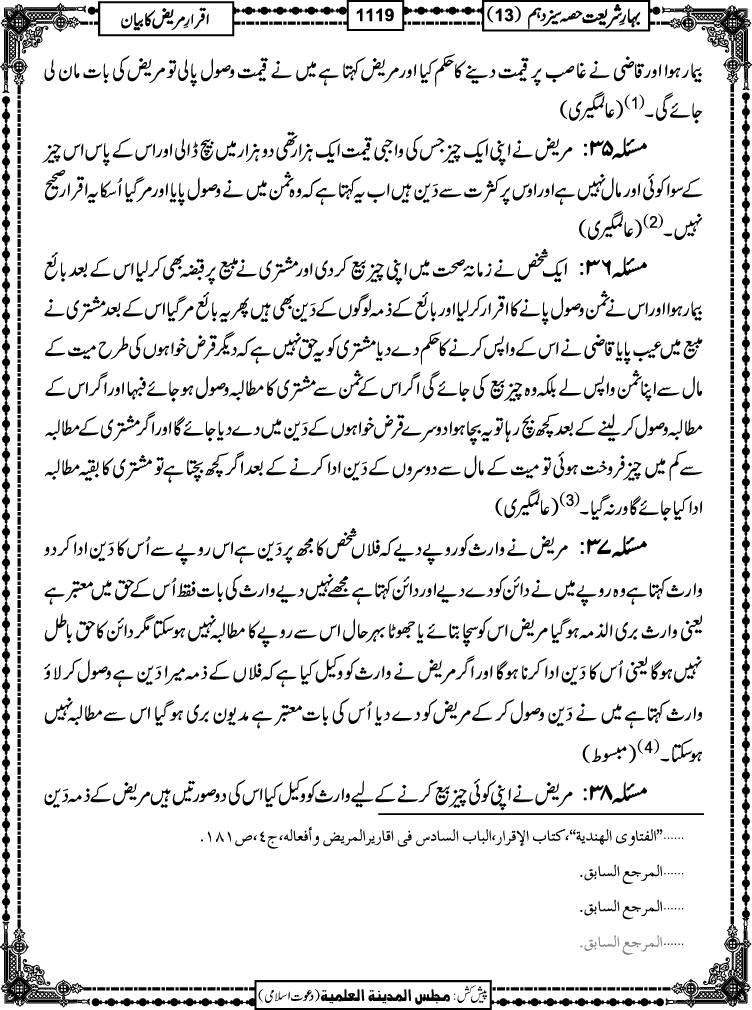 بہارِ شریعت حصہ سیزدہم (13)
1119
اقرارِ مریض کا بیان
بیمار ہوا اور قاضی نے غاصب پر قیمت دینے کا حکم کیا اور مریض کہتا ہے میں نے قیمت وصول پالی تو مریض کی بات مان لی
جائے گی۔(1) (عالمگیری)
مسئلہ ۳۵: مریض نے اپنی ایک چیز جس کی واجبی قیمت ایک ہزار تھی دو ہزار میں بیچ ڈالی اور اس کے پاس اس چیز
کے سوا کوئی اور مال نہیں ہے اور اوس پر کثرت سے دَین ہیں اب یہ کہتا ہے کہ وہ ثمن میں نے وصول پایا اور مرگیا اُسکا یہ اقرار صحیح
نہیں۔(2) (عالمگیری)
مسئلہ ۳۶: ایک شخص نے زمانۂ صحت میں اپنی چیز بیع کردی اور مشتری نے مبیع پر قبضہ بھی کرلیا اس کے بعد بائع
بیمار ہوا اور اس نے ثمن وصول پانے کا اقرار کرلیا اور بائع کے ذمہ لوگوں کے دَین بھی ہیں پھر یہ بائع مرگیا اس کے بعد مشتری نے
مبیع میں عیب پایا قاضی نے اس کے واپس کرنے کا حکم دے دیا مشتری کو یہ حق نہیں ہے کہ دیگر قرض خواہوں کی طرح میت کے
مال سے اپنا ثمن واپس لے بلکہ وہ چیز بیع کی جائے گی اگر اس کے ثمن سے مشتری کا مطالبہ وصول ہو جائے فبہا اور اگر اس کے
مطالبہ وصول کر لینے کے بعد کچھ بچ رہا تو یہ بچا ہوا دوسرے قرض خواہوں کے دَین میں دے دیا جائے گا اور اگر مشتری کے مطالبہ
سے کم میں چیز فروخت ہوئی تو میت کے مال سے دوسروں کے دَین ادا کرنے کے بعد اگر کچھ بچتا ہے تو مشتری کا بقیہ مطالبہ
ادا کیا جائے گا ورنہ گیا۔(3) (عالمگیری)
مسئلہ ۳۷: مریض نے وارث کو روپے دیے کہ فلاں شخص کا مجھ پر دَین ہے اس روپے سے اُس کا دَین ادا کر دو
وارث کہتا ہے وہ روپے میں نے دائن کو دے دیے اور دائن کہتا ہے مجھے نہیں دیے وارث کی بات فقط اُس کے حق میں معتبر ہے
یعنی وارث بری الذمہ ہوگیا مریض اس کو سچا بتائے یا جھوٹا بہر حال اس سے روپے کا مطالبہ نہیں ہوسکتا مگر دائن کا حق باطل
نہیں ہوگا یعنی اُس کا دَین ادا کرنا ہوگا اور اگر مریض نے وارث کو وکیل کیا ہے کہ فلاں کے ذمہ میرا دَین ہے وصول کر لاؤ
وارث کہتا ہے میں نے دَین وصول کر کے مریض کو دے دیا اُس کی بات معتبر ہے مدیون بری ہوگیا اس سے مطالبہ نہیں
ہوسکتا۔(4) (مبسوط)
مسئلہ ۳۸: مریض نے اپنی کوئی چیز بیع کرنے کے لیے وارث کو وکیل کیا اس کی دو صورتیں ہیں مریض کے ذمہ دَین
......"الفتاوى الهندية"،كتاب الإقرار،الباب السادس فى اقارير المريض وأفعاله،ج٤،ص١٨١.
......المرجع السابق.
......المرجع السابق.
......المرجع السابق.
پیش کش: مجلس المدینۃ العلمیۃ (دعوتِ اسلامی)